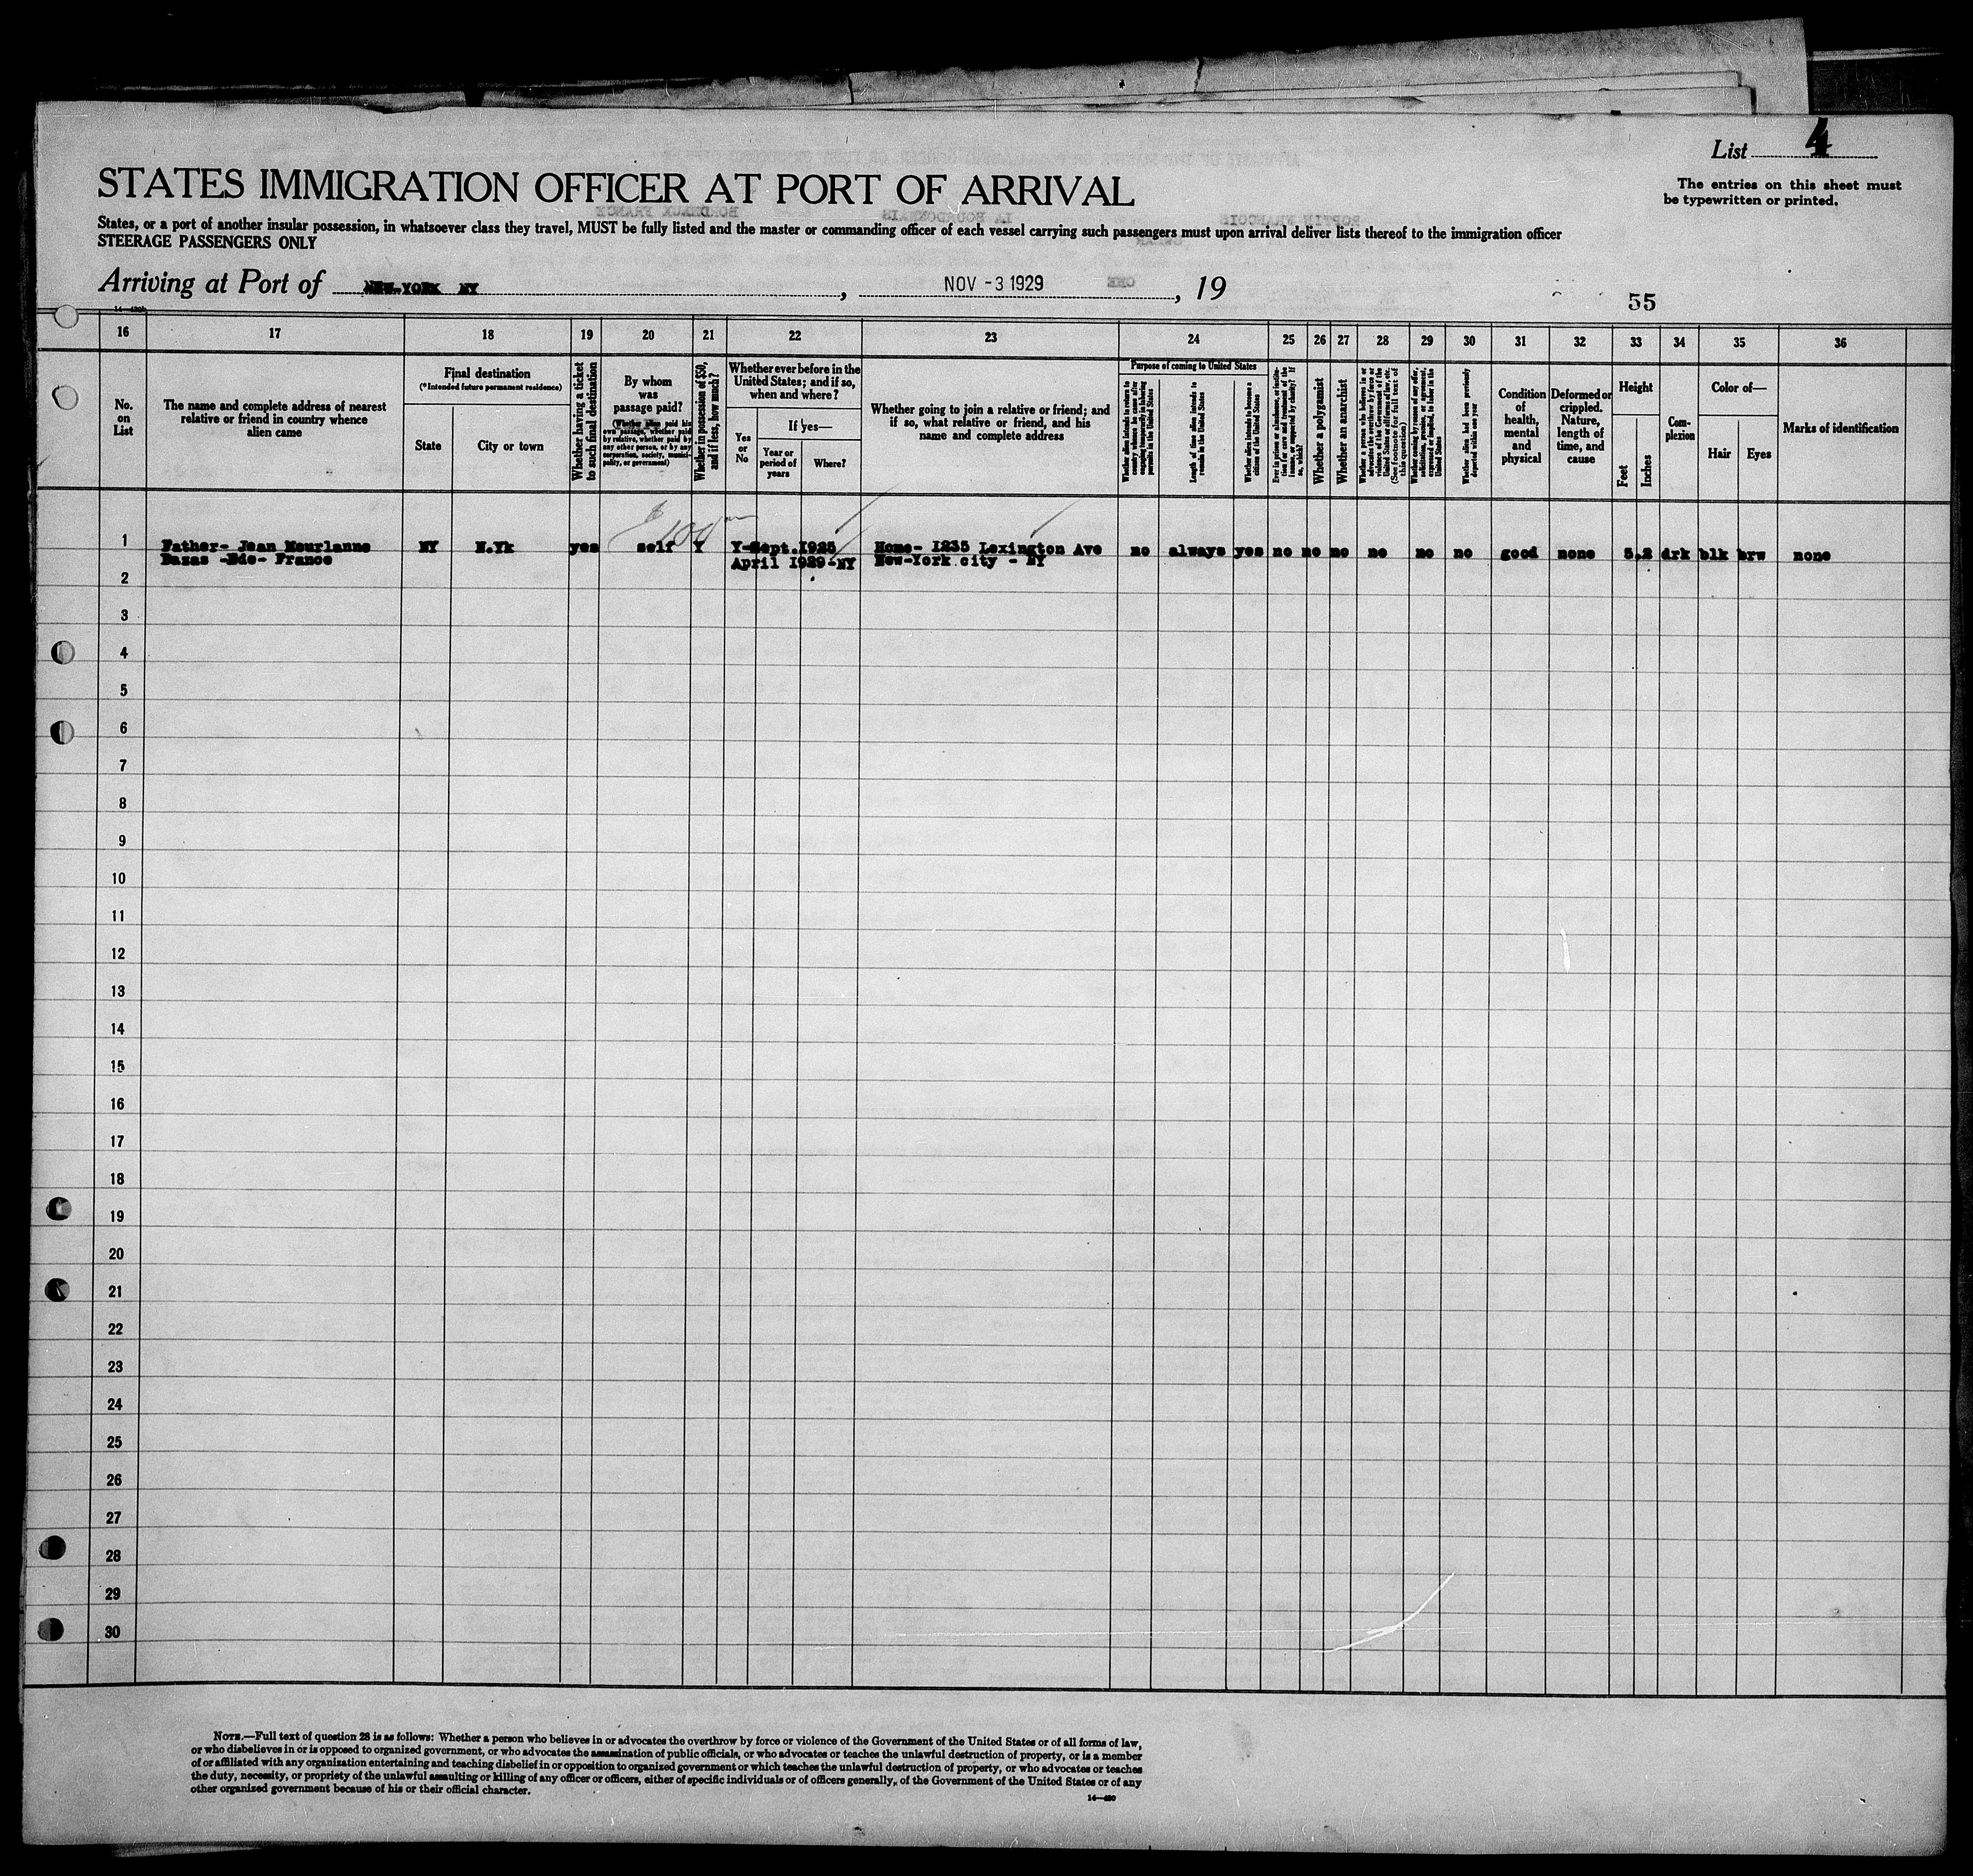 List 4
The entries on this sheet must
be typewritten or printed.
STATES IMMIGRATION OFFICER AT PORT OF ARRIVAL
States, or a port of another insular possession, in whatsoever class they travel, MUST be fully listed and the master or commanding officer of each vessel carrying such passengers must upon arrival deliver lists thereof to the immigration officer
STEERAGE PASSENGERS ONLY
Arriving at Port of NEW-YORK NY, NOV -3 1929, 19
55
16 17 18 19 20 21 22 23 24 25 26 27 28 29 30 31 32 33 34 35 36
No.
on
List
The name and complete address of nearest
relative or friend in country whence
alien came
Final destination
(*Intended future permanent residence)
State
City or town
Whether having a ticket
to such final destination
By whom
was
passage paid?
(Whether alien paid his
own passage, whether paid
by relative, whether paid by
any other person, or by any
corporation, society, munici-
pality, or government)
Whether in possession of $50,
and if less, how much?
Whether ever before in the
United States; and if so,
when and where?
Yes
or
No
If yes—
Year or
period of
years
Where?
Whether going to join a relative or friend; and
if so, what relative or friend, and his
name and complete address
Purpose of coming to United States
Whether alien intends to return to
country whence he came after
engaging temporarily in laboring
pursuits in the United States
Length of time alien intends to
remain in the United States
Whether alien intends to become a
citizen of the United States
Ever in prison or almshouse, or institu-
tion for care and treatment of the
insane, or supported by charity? If
so, which?
Whether a polygamist
Whether an anarchist
Whether a person who believes in or
advocates the overthrow by force or
violence of the Government of the
United States or all forms of law, etc.
(See footnote for full text of
this question)
Whether coming by reason of any offer,
solicitation, promise, or agreement,
expressed or implied, to labor in the
United States
Whether alien had been previously
deported within one year
Condition
of
health,
mental
and
physical
Deformed or
crippled.
Nature,
length of
time, and
cause
Height
Feet
Inches
Com-
plexion
Color of—
Hair
Eyes
Marks of identification
$100
1 Father- Jean Mourlanne NY N.Yk yes self Y Y-Sept.1925 Home- 1235 Lexington Ave no always yes no no no no no no good none 5.2 drk blk brw none
Bazas -Gde- France April 1929-NY New-York city - NY
2
3
4
5
6
7
8
9
10
11
12
13
14
15
16
17
18
19
20
21
22
23
24
25
26
27
28
29
30
NOTE.—Full text of question 28 is as follows: Whether a person who believes in or advocates the overthrow by force or violence of the Government of the United States or of all forms of law,
or who disbelieves in or is opposed to organized government, or who advocates the assassination of public officials, or who advocates or teaches the unlawful destruction of property, or is a member
of or affiliated with any organization entertaining and teaching disbelief in or opposition to organized government or which teaches the unlawful destruction of property, or who advocates or teaches
the duty, necessity, or propriety of the unlawful assaulting or killing of any officer or officers, either of specific individuals or of officers generally, of the Government of the United States or of any
other organized government because of his or their official character.
14—480